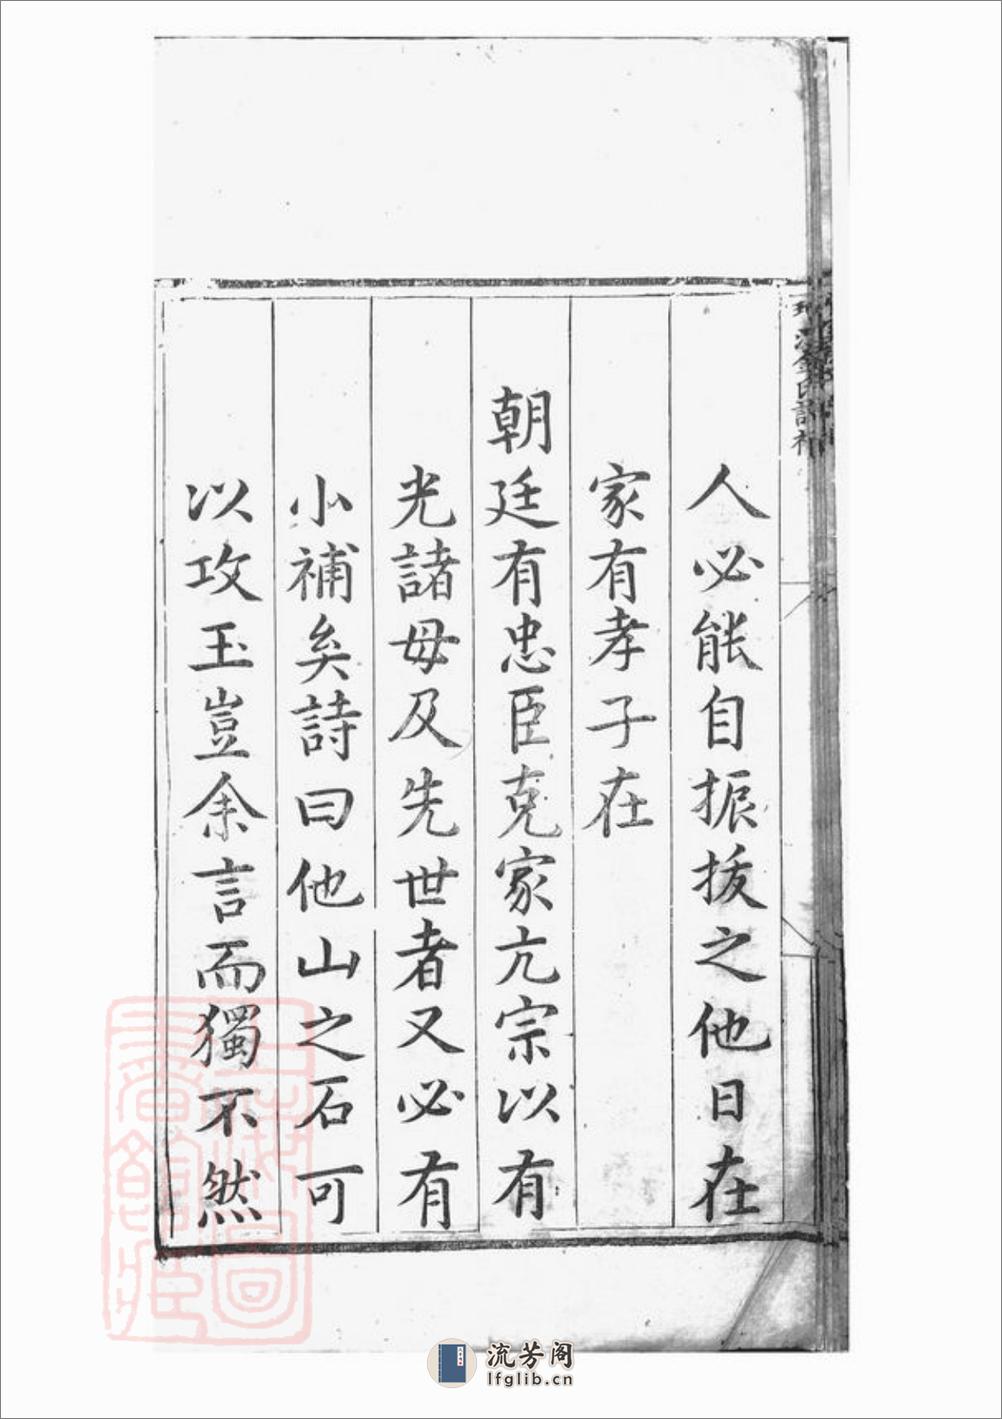 人必能自振拔之他日在
家有孝子在
朝廷有忠臣克家亢宗以有
光諸母及先世者又必有
小補矣詩曰他山之石可
以攻玉豈余言而獨不然
流芳阁
lfglib.cn